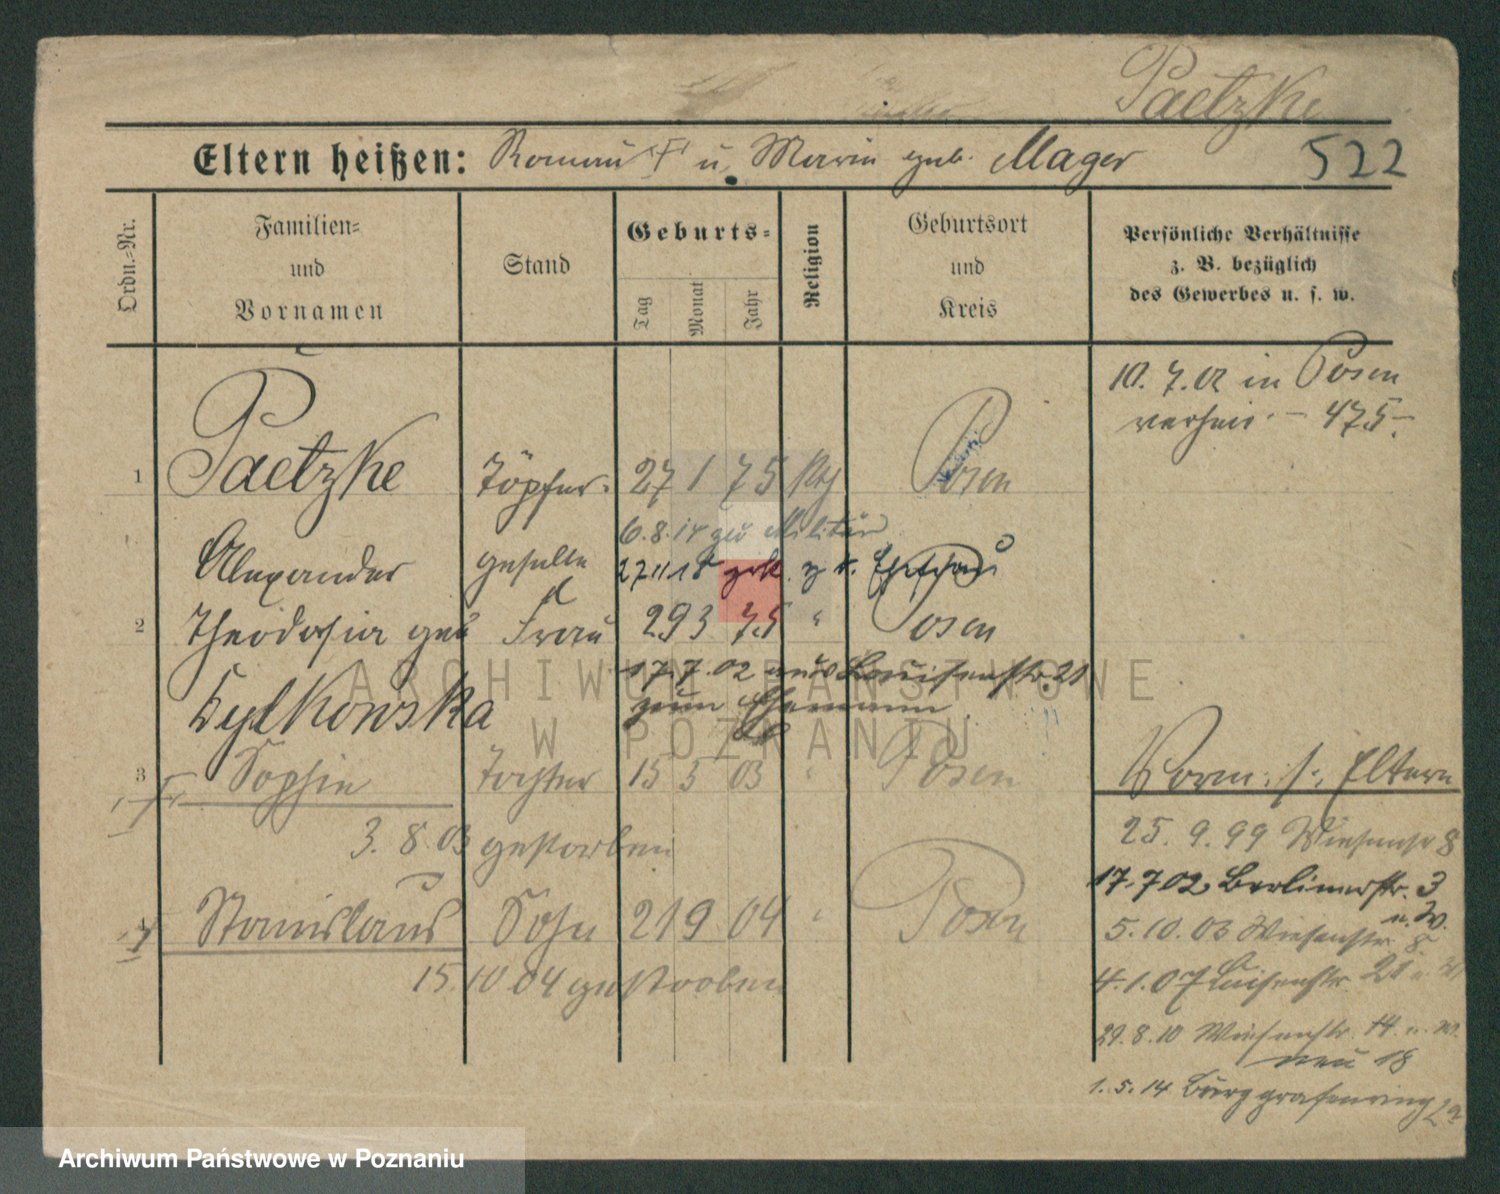 Paetzke
Eltern heißen: Roman † u. Marie geb. Mager 522
Ordn.=Nr.
Familien=
und
Vornamen
Stand
Geburts=
Tag
Monat
Jahr
Religion
Geburtsort
und
Kreis
Persönliche Verhältnisse
z. B. bezüglich
des Gewerbes u. s. w.
10. 7. 02 in Posen
verheir. – 475 –
1 Paetzke Töpfer- 27 1 75 kth Posen
6.8.14 zum Militär
Alexander geselle 27 11 18
2 Theodosia geb Frau 29 3 75 " Posen
17.7.02 aus Louisenstr. 21
zum Ehemann
Sylkowska
3 Sophie Tochter 15 5 03 " Posen Vorm. s. Eltern
3. 8. 03 gestorben
25. 9. 99 Wiesenstr 8
17.7 02 Berlinerstr. 3
u. W.
4 Stanislaus Sohn 21 9 04 " Posen
5. 10. 03 Wiesenstr. 8
15. 10 04 gestorben
4. 1. 07 Luisenstr. 21
29. 8. 10 Wiesenstr. 14 u. W.
neu 18
1. 5. 14 Burggrafenring
ARCHIWUM PAŃSTWOWE
W POZNANIU
Archiwum Państwowe w Poznaniu